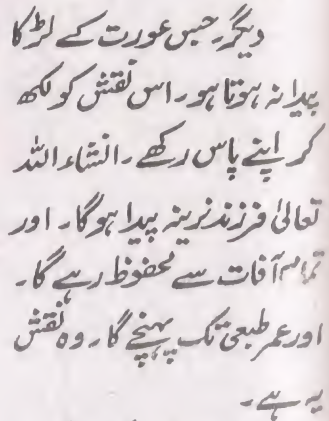 دیگر۔ جس عورت کے لڑکا
پیدا نہ ہوتا ہو۔ اس نقش کو لکھ
کر اپنے پاس رکھے۔ انشاء اللہ
تعالیٰ فرزند نرینہ پیدا ہوگا۔ اور
تمام آفات سے محفوظ رہے گا۔
اور عمر طبعی تک پہنچے گا۔ وہ نقش
یہ ہے۔